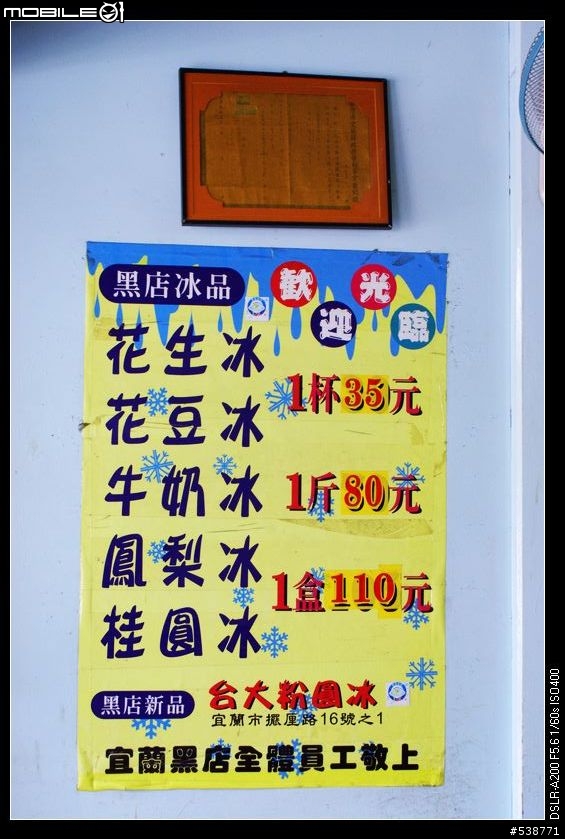 MOBILE01
黑店冰品
歡迎光臨
花生冰
花豆冰
1杯35元
牛奶冰
1斤80元
鳳梨冰
1盒110元
桂圓冰
黑店新品
台大粉圓冰
宜蘭市擺厘路16號之1
宜蘭黑店全體員工敬上
DSLR-A200 F5.6 1/60s ISO400
#538771